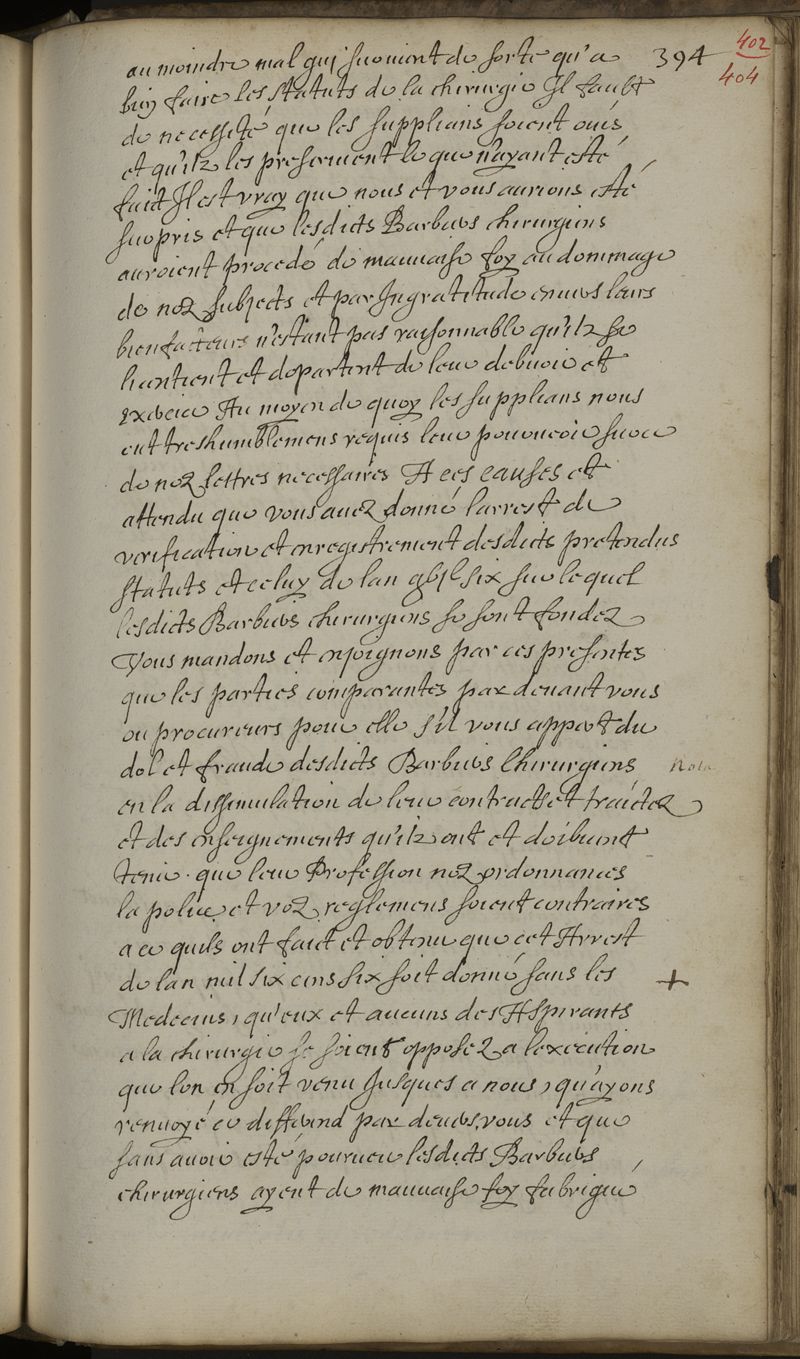 394
402
404
au moindre mal qui survient de sorte qu'a
bien faire les statuts de la chirurgie Il fault
de necessité que les supplians soient ouis,
et qu'ilz les presentent ce que n'ayant esté
faict Il est vray que nous et vous aurions esté
surpris et que lesdicts Barbiers chirurgiens
auroient procedé de mauvaise foy au dommage
de noz subjects et par Ingratitude envers leurs
bienfacteurs n'estant pas raisonnable qu'ilz se
licentient et departent de leur debvoir et
exercice Au moyen de quoy les supplians nous
ont treshumblemens requis leur pourveoir sur ce
de noz lettres necessaires A ces causes et
attendu que vous avez donné larrest de
verification et enregistrement desdicts pretendus
statuts et celuy de lan six sur lequel
lesdicts Barbiers chirurgiens se sont fondez
Vous mandons et enjoignons par ces presentes
que les parties comparantes par devant vous
ou procureurs pour elle s'il vous appert du
dol et fraude desdicts Barbiers Chirurgiens
Nota
en la dissimulation de leur contracts et traictez
et des enseignements qu'ilz ont et doibvent
tenir. que leur Profession noz ordonnances
la police et voz reglemens soient contraires
a ce quils ont faict et obtenu que cet Arrest
de lan mil six cens six soit donné sans les +
Medecins, qu'eux et aucuns des Aspirants
a la chirurgie se soient opposez a lexecution
que lon en soit venu Jusques a nous, qu'ayons
renvoyé ce differend par devers vous et que
sans avoir esté pourveu lesdicts Barbiers
chirurgiens ayent de mauvaise foy fabriqué